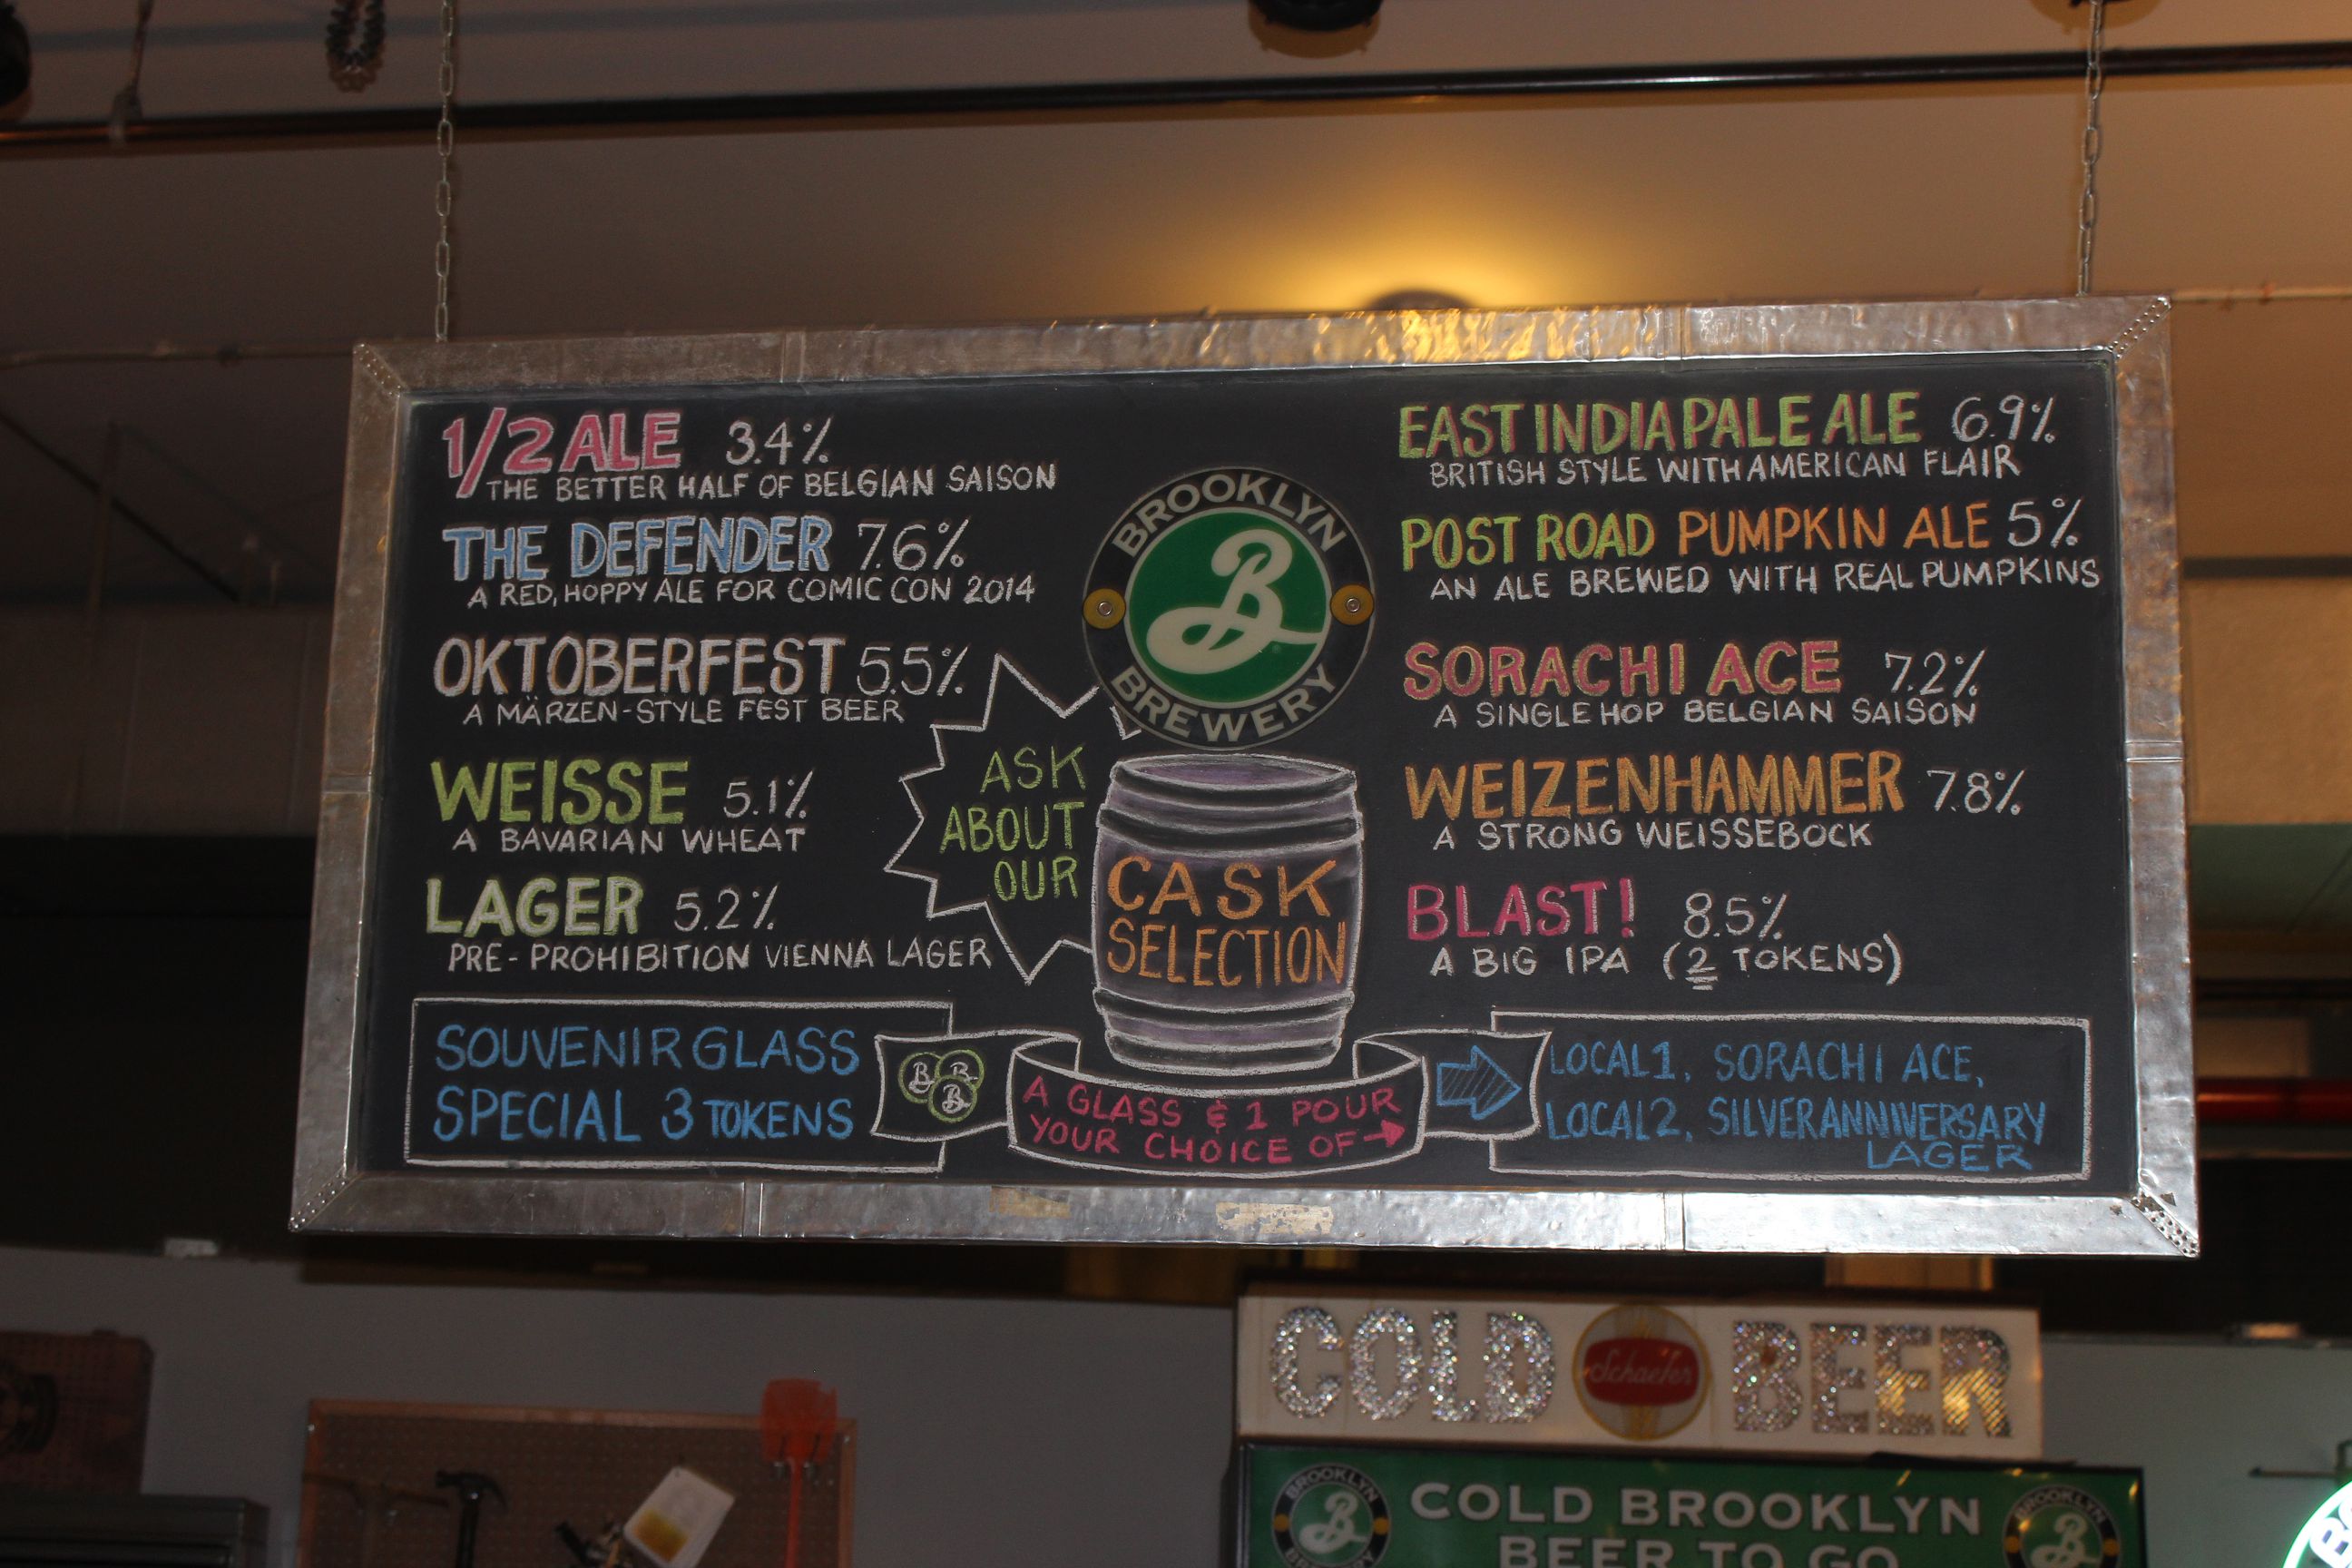 1/2 ALE 3.4%
THE BETTER HALF OF BELGIAN SAISON
THE DEFENDER 7.6%
A RED, HOPPY ALE FOR COMIC CON 2014
OKTOBERFEST 5.5%
A MÄRZEN-STYLE FEST BEER
WEISSE 5.1%
A BAVARIAN WHEAT
LAGER 5.2%
PRE-PROHIBITION VIENNA LAGER
BROOKLYN
B
BREWERY
ASK
ABOUT
OUR
CASK
SELECTION
EAST INDIA PALE ALE 6.9%
BRITISH STYLE WITH AMERICAN FLAIR
POST ROAD PUMPKIN ALE 5%
AN ALE BREWED WITH REAL PUMPKINS
SORACHI ACE 7.2%
A SINGLE HOP BELGIAN SAISON
WEIZENHAMMER 7.8%
A STRONG WEISSEBOCK
BLAST! 8.5%
A BIG IPA (2 TOKENS)
SOUVENIR GLASS
SPECIAL 3 TOKENS
B B
B
A GLASS & 1 POUR
YOUR CHOICE OF →
LOCAL 1, SORACHI ACE,
LOCAL 2, SILVER ANNIVERSARY
LAGER
COLD Schaefer BEER
BROOKLYN
B
BREWERY
COLD BROOKLYN
BEER TO GO
BROOKLYN
B